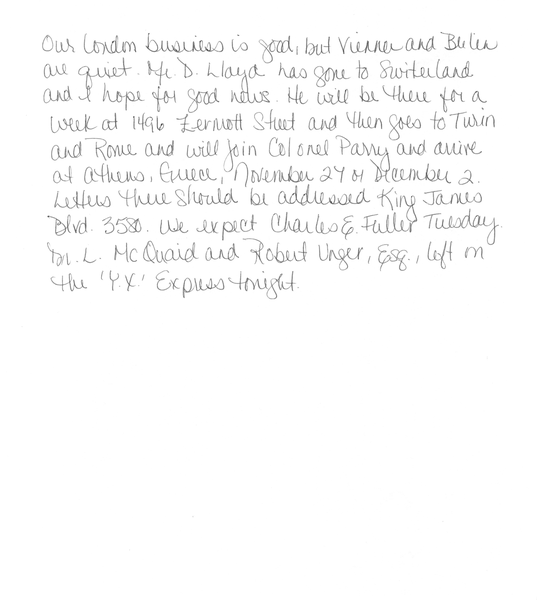 Our London business is good, but Vienna and Berlin
are quiet. Mr. D. Lloyd has gone to Switzerland
and I hope for good news. He will be there for a
week at 1496 Zermott Street and then goes to Turin
and Rome and will join Colonel Parry and arrive
at Athens, Greece, November 27 or December 2.
Letters there should be addressed King James
Blvd. 3580. We expect Charles E. Fuller Tuesday.
Dr. L. McQuaid and Robert Unger, Esq., left on
the 'Y.X.' Express tonight.